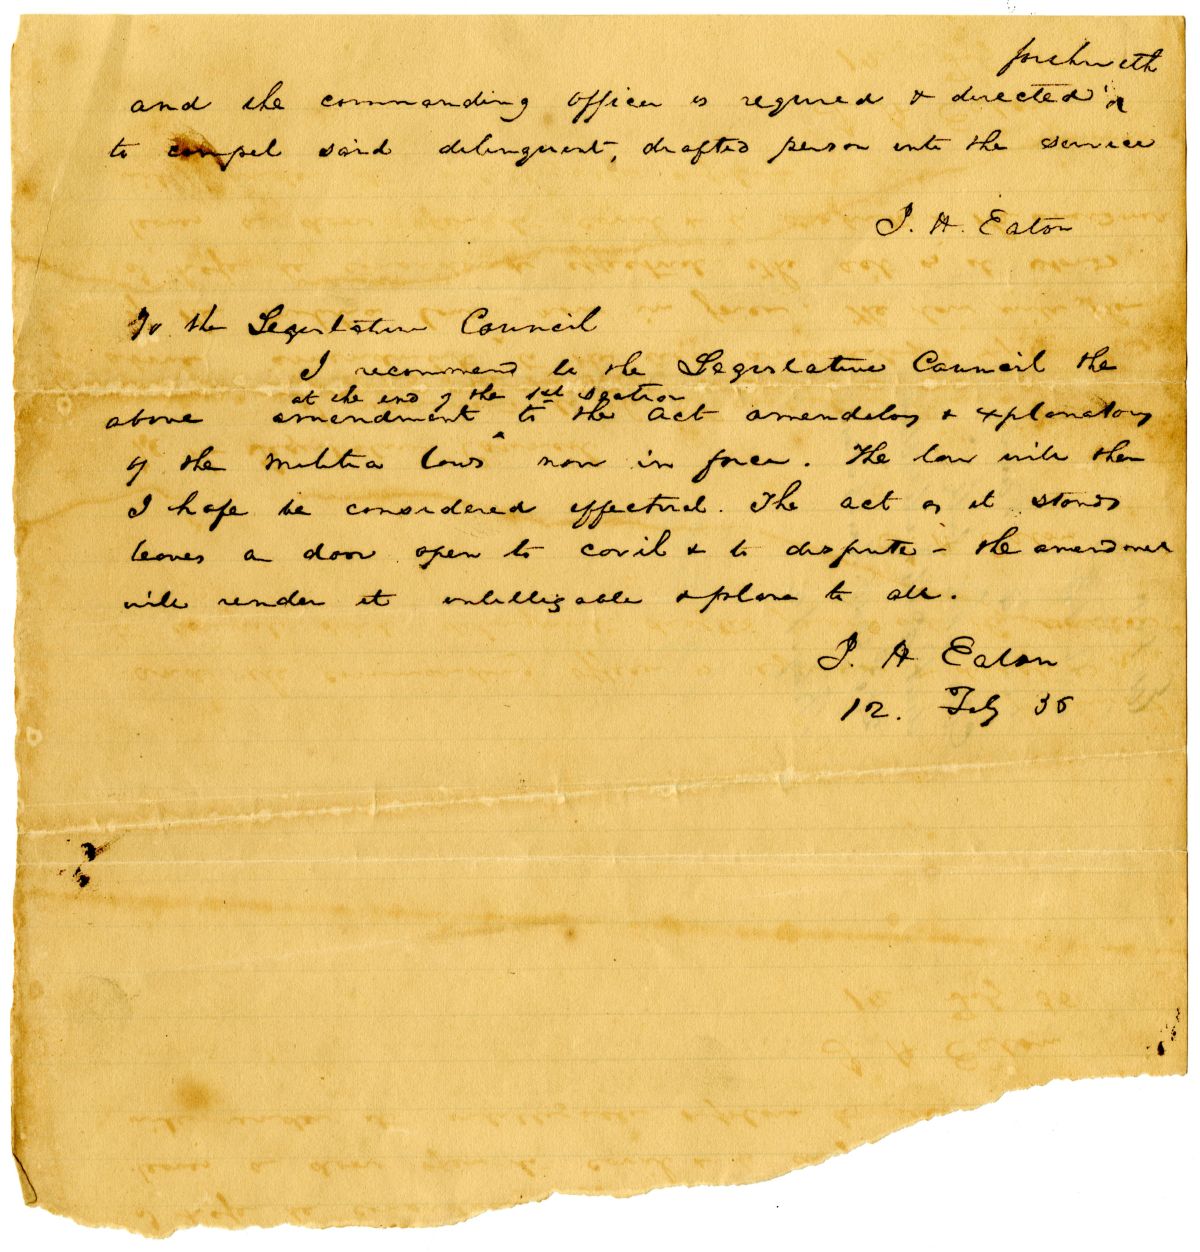 forthwith
and the commanding officer is required & directed
to compel said delinquent, drafted person into the service
J. H. Eaton
To the Legislative Council
I recommend to the Legislative Council the
at the end of the 1st section
above amendment to the act amendatory & explanatory
of the Militia laws now in force. The law will then
I hope be considered effectual. The act as it stands
leaves a door open to cavil & to dispute - the amendment
will render it intelligable & plane to all.
J. H Eaton
12. Feby 36